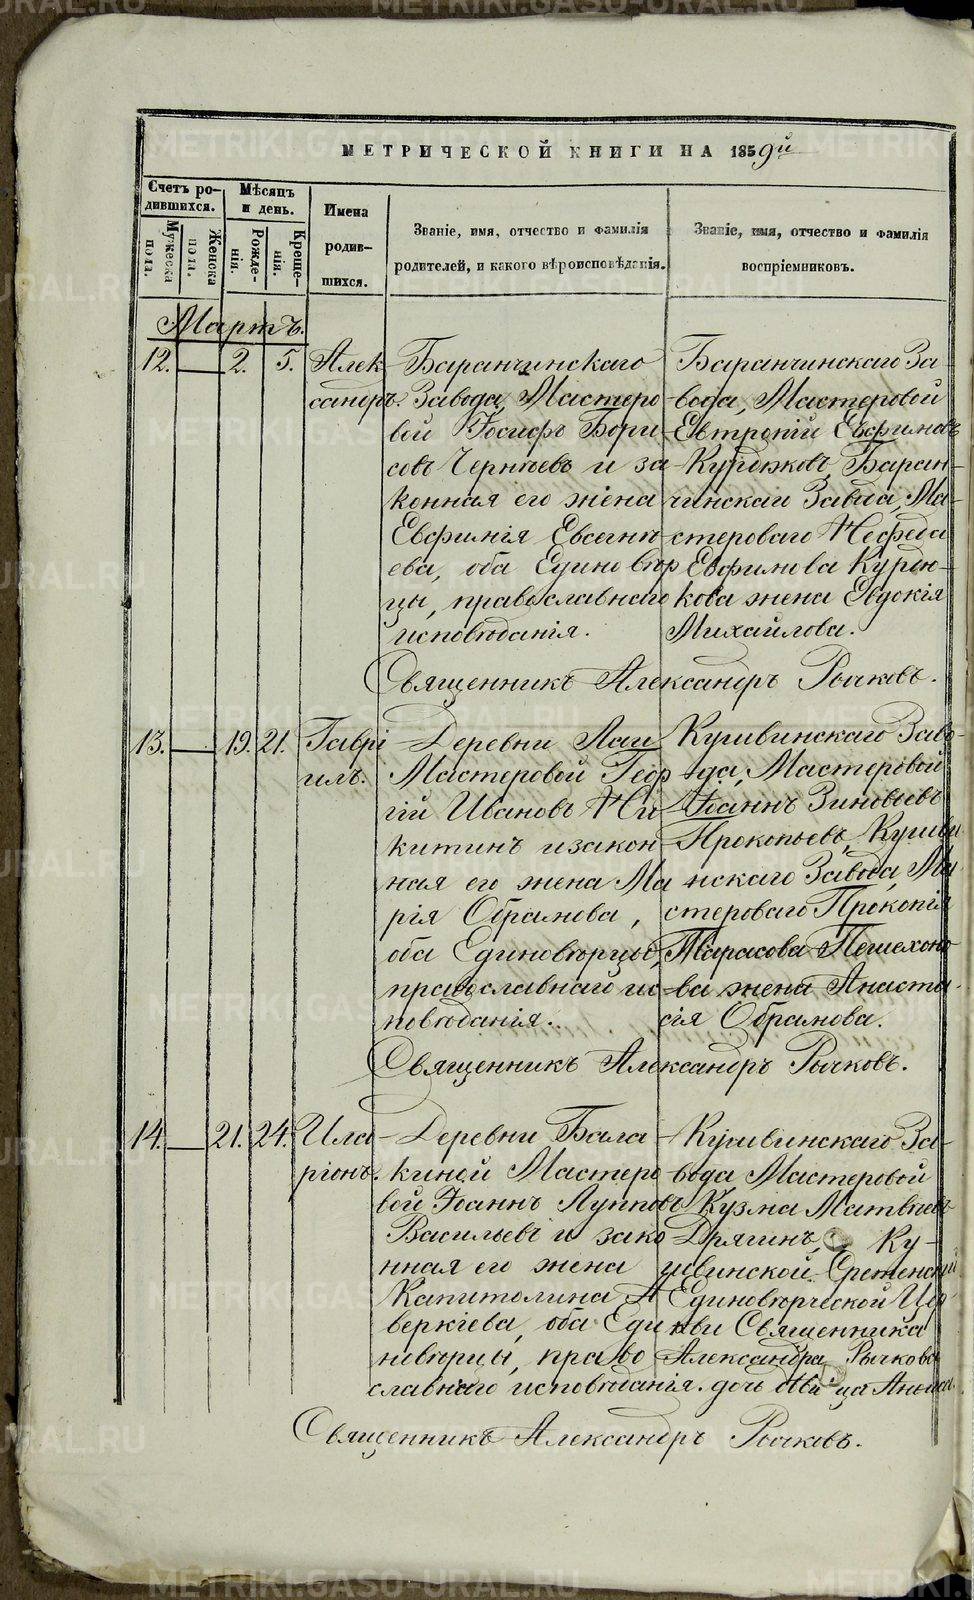 МЕТРИЧЕСКОЙ КНИГИ НА 1859й
Счетъ ро-
дившихся.
Мужеска
пола.
Женска
пола.
Мѣсяцъ
и день.
Рожде-
нія.
Креще-
нія.
Имена
родив-
шихся.
Званіе, имя, отчество и фамилія
родителей, и какого вѣроисповѣданія.
Званіе, имя, отчество и фамилія
воспріемниковъ.
Мартъ.
12. — 2. 5. Алек-
сандръ.
Баранчинскаго
Завода, Мастеро-
вой Іосифъ Бори-
совъ Черняевъ и за-
конная его жена
Евфимія Евсегнѣ-
ева, оба Единовѣр
цы, православнаго
исповѣданія.
Баранчинскаго За-
вода, Мастеровой
Евтропій Евфимовъ
Курдюковъ, Баран-
чинскаго Завода, Ма-
стероваго Нефеда
Евфимова Курдю-
кова жена Евдокія
Михайлова.
Священникъ Александръ Рычковъ.
13. — 19. 21. Гаврі
илъ.
Деревни Лаи
Мастеровой Геор-
гій Ивановъ Ни
китинъ и закон-
ная его жена Ма
рія Абрамова,
оба Единовѣрцы,
православнаго ис-
повѣданія.
Кушвинскаго Заво-
да, Мастеровой
Іоаннъ Зиновьевъ
Прокопьевъ, Кушви
нскаго Завода, Ма
стероваго Прокопія
Тарасова Пешехоно
ва жена Анаста-
сія Абрамова.
Священникъ Александръ Рычковъ.
14. — 21. 24. Ила-
ріонъ.
Деревни Бала-
киной Мастеро-
вой Іоаннъ Лупповъ
Васильевъ и зако
нная его жена
Капитолина А
веркіева, оба Еди
новѣрцы, право
славнаго исповѣданія.
Кушвинскаго За-
вода Мастеровой
Кузма Матвѣевъ
Дрягинъ, Ку-
швинской Сретенской
Единовѣрческой Цер
кви Священника
Александра Рычкова
дочь дѣвица Анна.
Священникъ Александръ Рычковъ.
METRIKI.GASO-URAL.RU